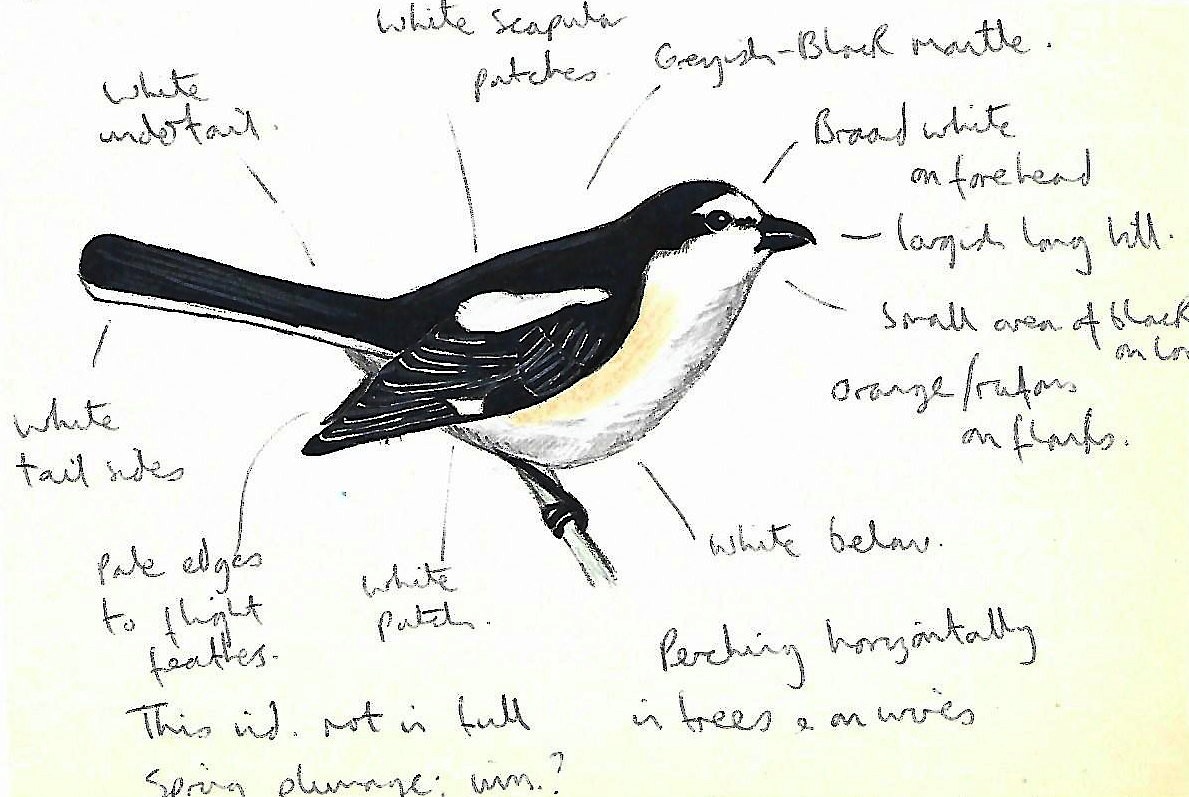 White Scapular
patches.
Greyish-Black mantle.
White
undertail.
Broad white
on forehead
largish long bill.
Small area of black
on lo
Orange/rufous
on flanks.
White
tail sides
Pale edges
to flight
feathes.
White
patch.
White below.
Perching horizontally
in trees & on wires
This ind. not in full
Spring plumage: imm.?